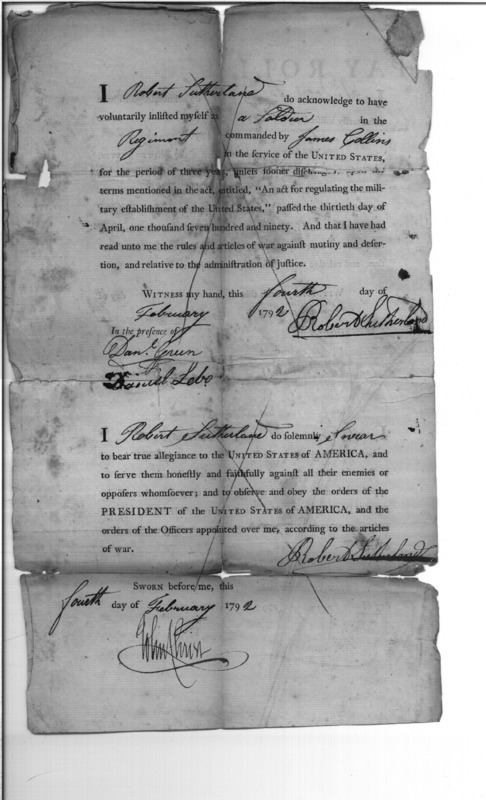 PAY ROLL
I Robert Sutherland do acknowledge to have
voluntarily inlisted myself as a Soldier in the
Regiment commanded by James Collins
in the service of the UNITED STATES,
for the period of three years, unless sooner discharged, upon the
terms mentioned in the act, entitled, "An act for regulating the mili-
tary establishment of the United States," passed the thirtieth day of
April, one thousand seven hundred and ninety. And that I have had
read unto me the rules and articles of war against mutiny and deser-
tion, and relative to the administration of justice.
WITNESS my hand, this fourth day of
February 1792 Robert Sutherland
In the presence of
Danl. Green
Daniel Lobe
I Robert Sutherland do solemnly Swear
to bear true allegiance to the UNITED STATES of AMERICA, and
to serve them honestly and faithfully against all their enemies or
opposers whomsoever; and to observe and obey the orders of the
PRESIDENT of the UNITED STATES of AMERICA, and the
orders of the Officers appointed over me, according to the articles
of war.
Robert Sutherland
SWORN before me, this
fourth day of February 1792
John